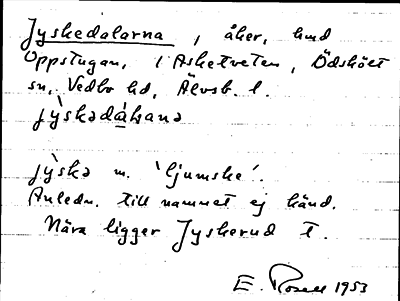 Jyskedalarna, åker, hmd
Oppstugan, i Asketveten, Ödskölt
sn, Vedbo hd, Älvsb. l.
jỳskadáɫana
jỳska m. 'ljumske'.
Anledn. till namnet ej känd.
Nära ligger Jyskerud t.
E. Rosell 1953